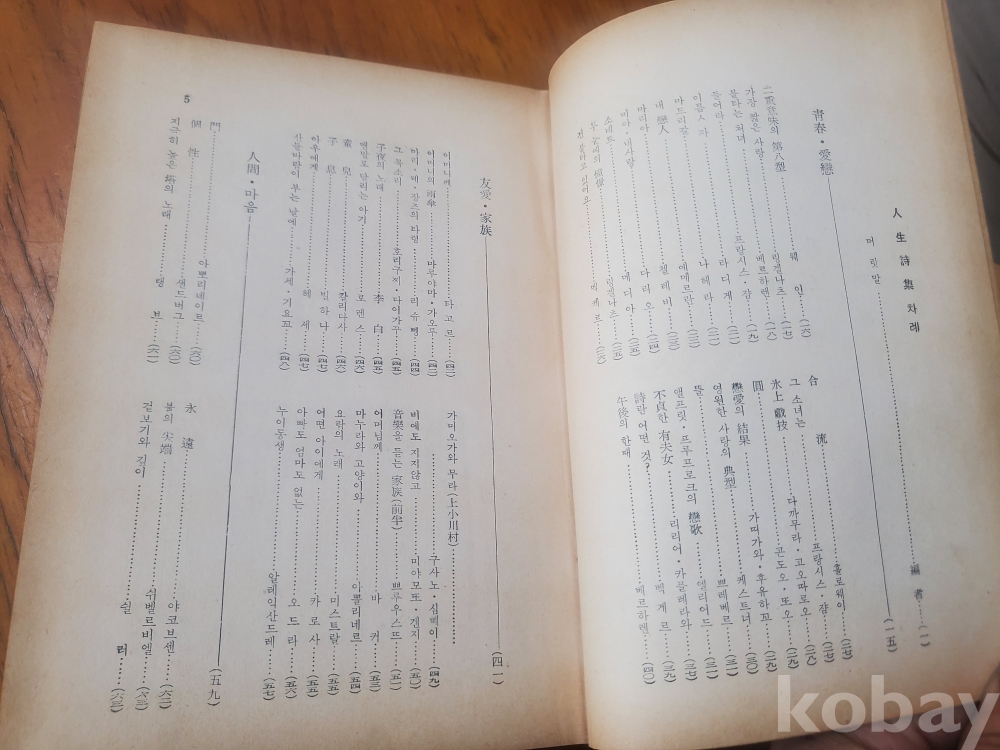 人生詩集 차례
머릿말 編者 (一)
靑春・愛戀 (一五)
二重意味의 第八型 웨인 (一六)
가장 짧은 사랑 링겔나츠 (一七)
불타는 처녀 베르하렌
들어라 프랑시스・쟘 (一九)
이름 라디게
마드리갈 나헤라
내 戀人 에메르람
마리아 젤레비
미아・내사랑 다리오 (二四)
소네트 매디아 (二五)
링겔나츠 (二五)
께케르
合流 홀로웨이 (二七)
그 소녀는 프랑시스・쟘 (二七)
氷上戱技 다까무라・고오따로오 (二八)
圓 곤도오・또오 (二九)
戀愛의 結果 가따가와・후유하꼬 (二九)
영원한 사랑의 典型 케스트너
뜰 쁘레베르 (三一)
앨프릿・프루프로크의 戀歌 엘리어드
不貞한 有夫女 리리어・카플레라와
詩란 어떤 것? 벡게르 (三九)
午後의 한때 베르하렌 (四〇)
友愛・家族 (四一)
어머니께 타고르
어머니의 雨傘 마루야마・가오루
마리・네・잔즈의 타령 리슈뼁 (四四)
그 목소리 호리구찌・다이가꾸
子夜의 노래 李白 (四五)
맨발로 달리는 아기 로렌스
童兒 캉리다사 (四六)
子息 빅하나 (四七)
아우에게 헤세 (四七)
산들바람이 부는 날에 가제・기요꼬 (四八)
가미오가와 무라(上小川村) 구사노・심뻬이 (四九)
비에도 지지않고 미야모또・겐지
音樂을 듣는 家族(前半) 쁘루우스뜨 (五一)
어머님께 바커 (五三)
마누라와 고양이와 아뽈리네르 (五四)
요람의 노래 미스트랄 (五五)
어떤 아이에게 카로사 (五五)
아빠도 엄마도 없는 오드라 (五六)
누이동생 알레익산드레 (五七)
人間・마음 (五九)
門 아뽀리네이르 (六〇)
個性 샌드버그 (六〇)
지극히 높은 塔의 노래 랭브 (六一)
永遠 야코브센 (六二)
불의 尖端 쉬뻴르비엘
겉보기와 깊이 쉴러
5
kobay